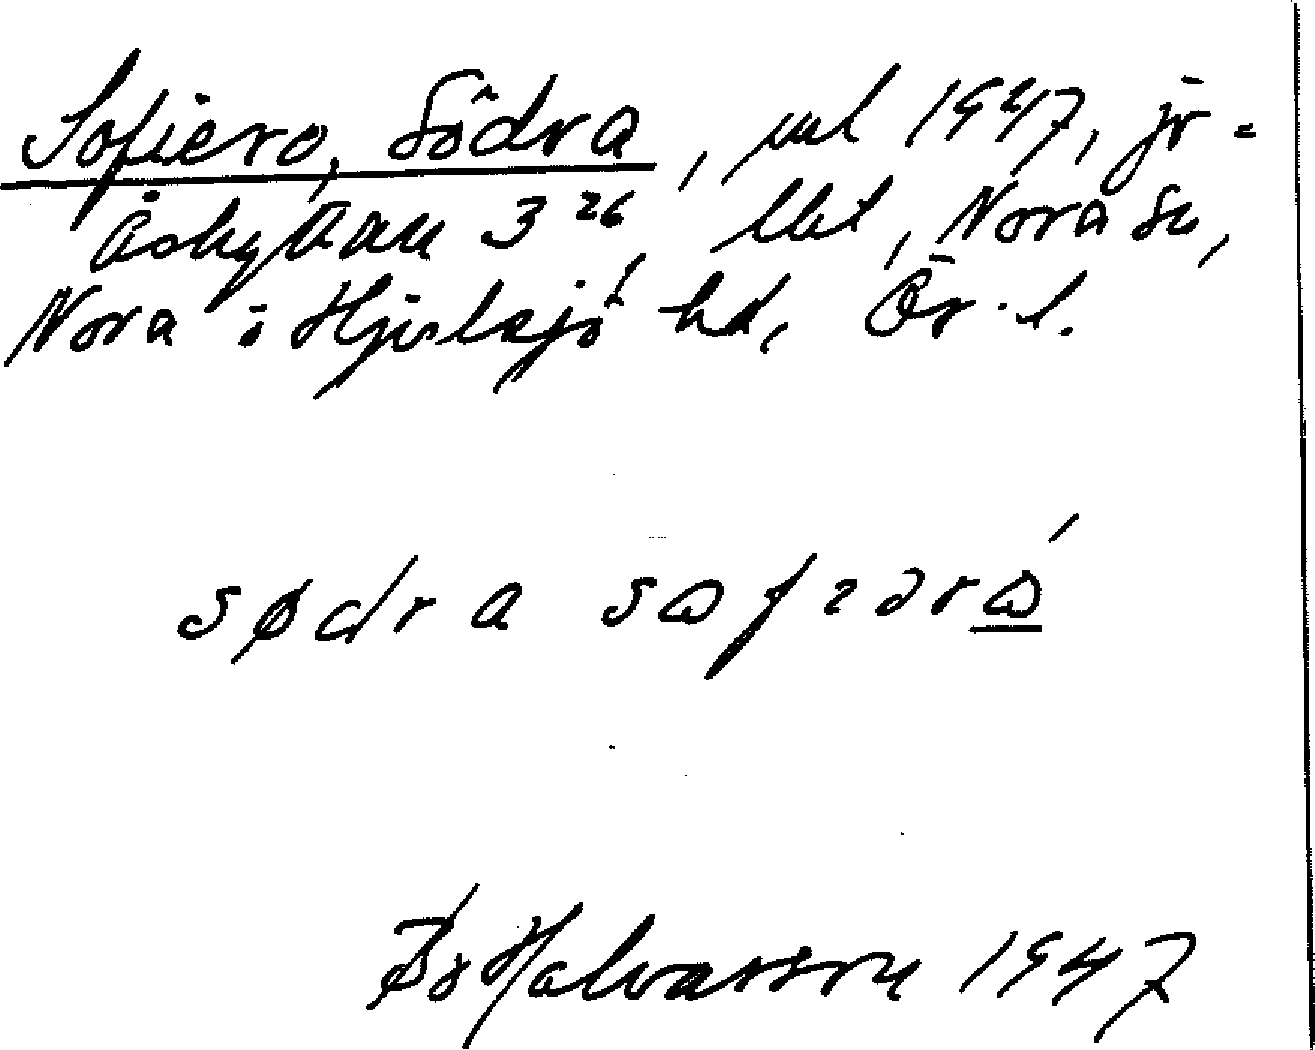 Sofiero, Södra, uul 1947, jr-
Åskyttan 3²⁶, lht, Nora sn,
Nora o Hjulsjö hd, Ör. l.
sødra sɷfɩərɷ́
Bo Halvarson 1947